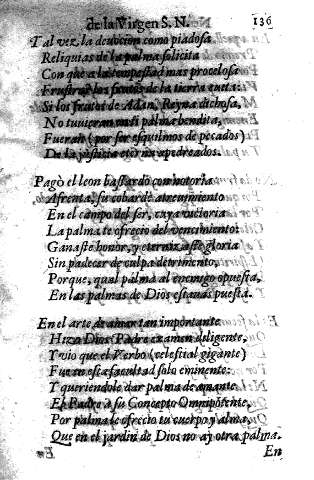 de la Virgen S. N. 136
Tal vez la deuocion como piadosa
Reliquias de la palma solicita
Con que a la tempestad mas procelosa
Frustrò los de la tierra
Si los frutos de Adan, Reyna dichosa,
No tuuieran en ti palma bendita,
Fueran (por ser esquilmos de pecados)
De la justicia eterna apedreados.
Pagò el leon bastardo con notoria
Afrenta, su cobarde atreuimiento
En el campo del ser, cuya victoria
La palma te ofrecio del vencimiento:
Ganaste honor, y eterniza este gloria
Sin padecer de culpa detrimento,
Porque, qual palma al enemigo opuesta,
En las palmas de Dios estauas puesta.
En el arte de amar tan importante
Hizo Dios Padre examen diligente,
Y vio que el Verbo (celestial gigante)
Fue en esta facultad solo eminente:
Y queriendole dar palma de amante
El Padre a su Concepto Omnipotente,
Por palma le ofrecio tu cuerpo y alma,
Que en el jardin de Dios no ay otra palma.
En